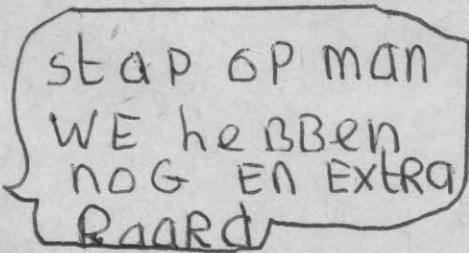 stap op man
WE heBBen
noG En ExtRa
PaaRd